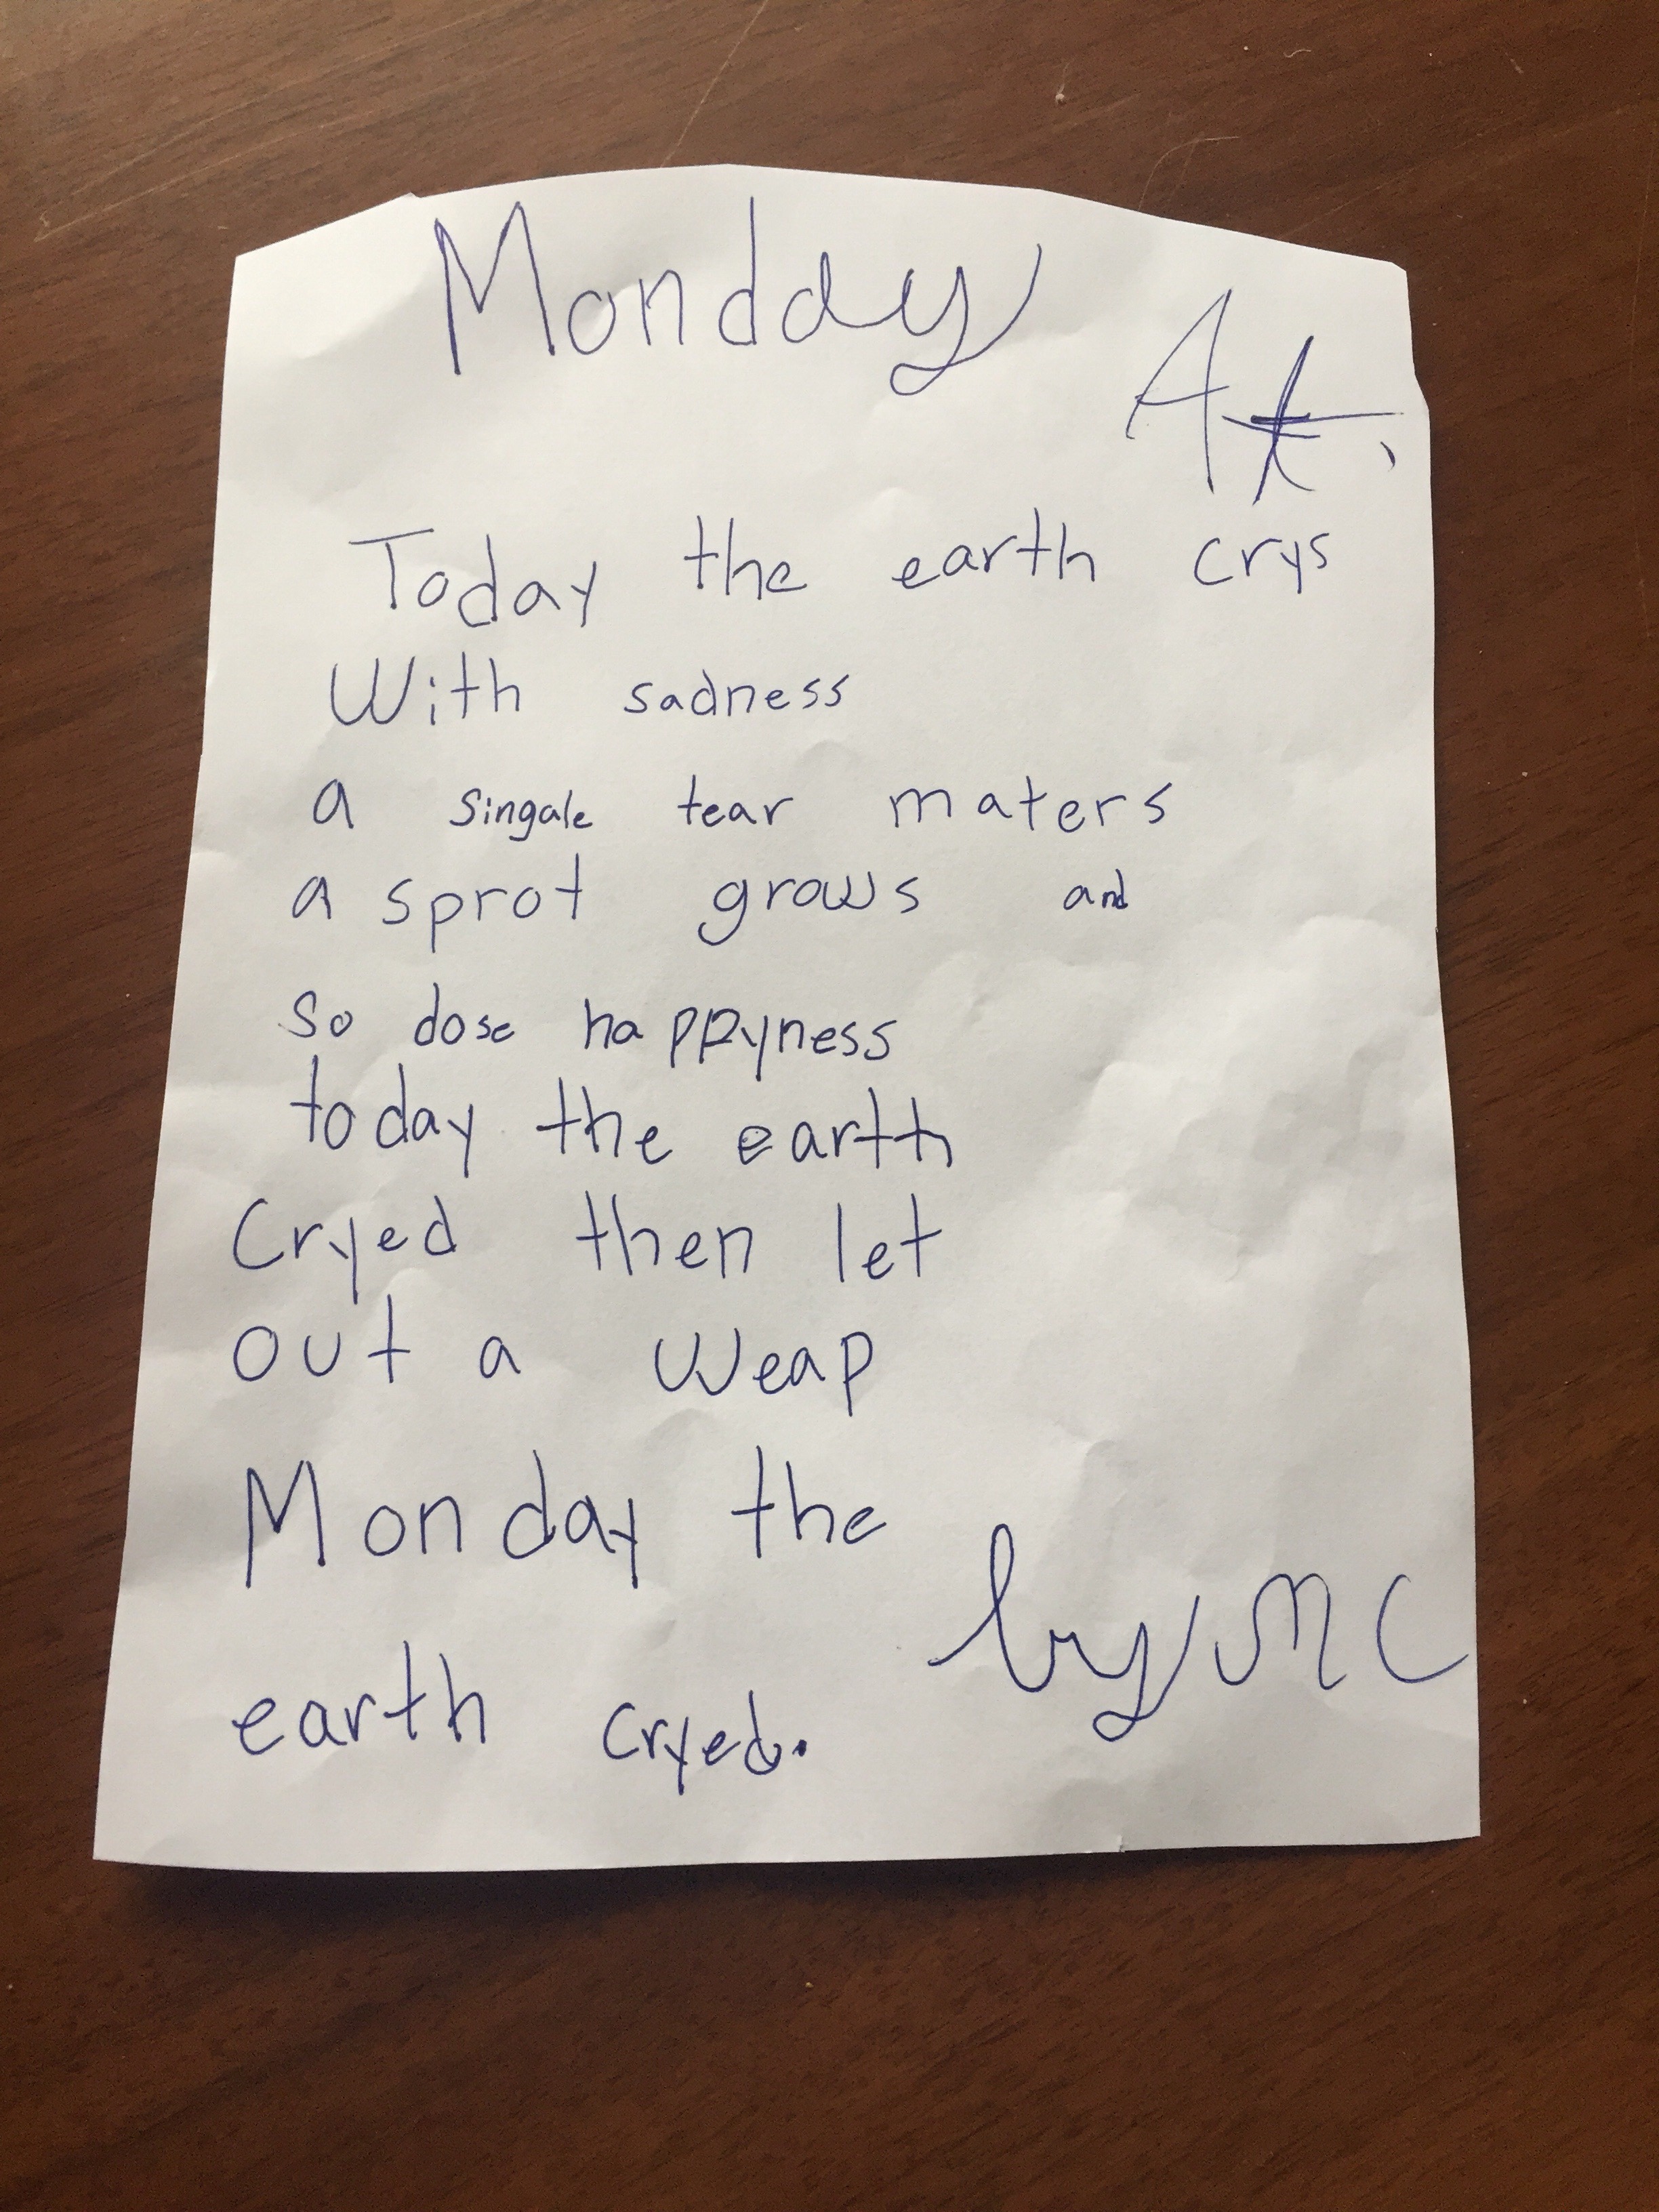 Monday
Today the earth crys
With sadness
a singale tear maters
a sprot grows and
so dose happyness
today the earth
Cryed then let
out a weap
Monday the
earth cryed.
by MC